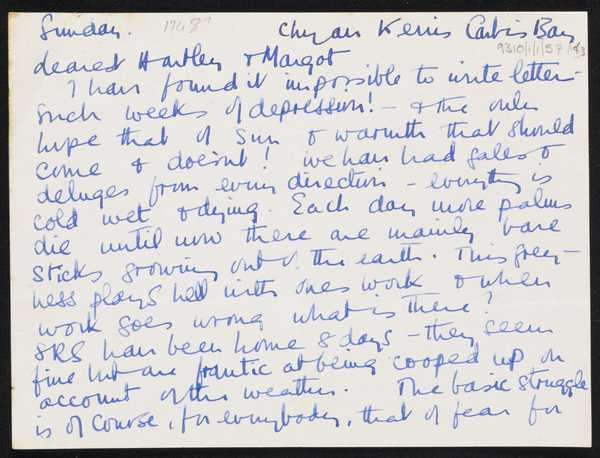 Sunday. 1948? Chy an Kerris Carbis Bay
9310/1/1/57/43
dearest Hartley & Margot
I have found it impossible to write letter -
such weeks of depression! - & the only
hope that of sun & warmth that should
come & doesn't! We have had gales &
deluges from every direction - everything is
cold wet & dying. Each day more palms
die until now there are mainly bare
sticks growing out of the earth. This grey-
ness plays hell with ones work & when
work goes wrong what is there?
SRS have been home 8 days - they seem
fine but are frantic at being cooped up on
account of the weather. The basic struggle
is of course, for everybody, that of fear for